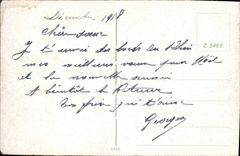 Décembre 1918
Chère sœur
Je t'envoi des bords du Rhin
mes meilleurs vœux pour Noël
et la nouvelle année
A bientôt le Retour
Ton frère qui t'aime
Georges
Z 5465